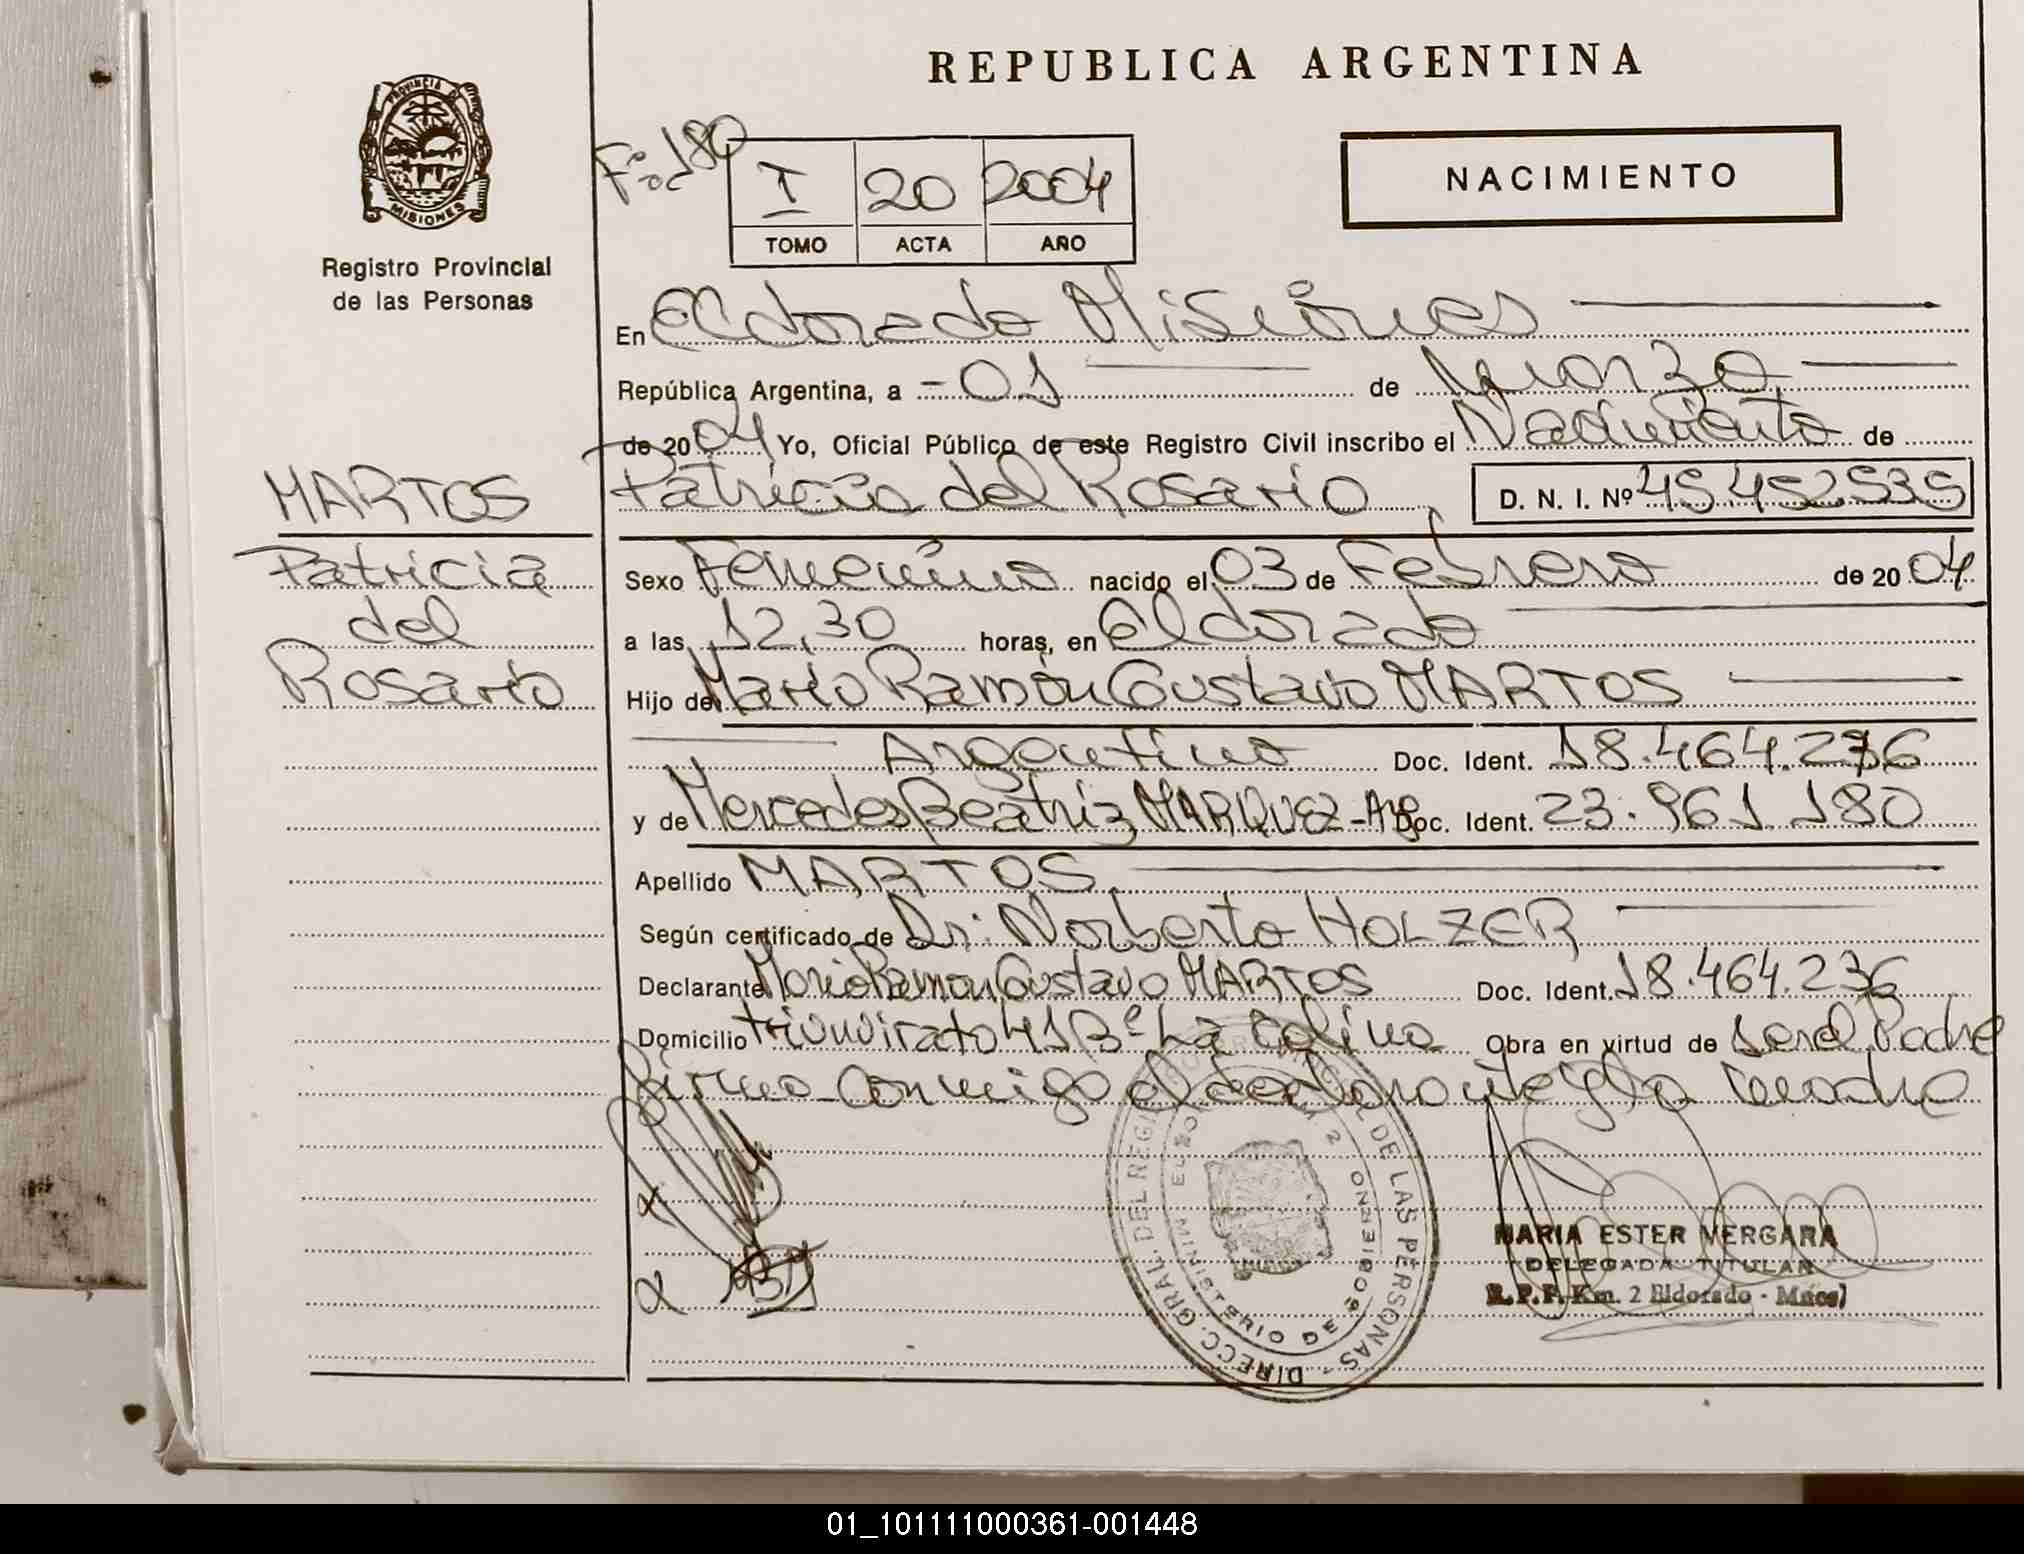 REPUBLICA ARGENTINA
PROVINCIA DE
MISIONES
Registro Provincial
de las Personas
Fº 180
I 20 2004
TOMO ACTA AÑO
NACIMIENTO
En Eldorado Misiones
República Argentina, a -01 de Marzo
de 2004 Yo, Oficial Público de este Registro Civil inscribo el Nacimiento de
Patricia del Rosario D. N. I. Nº 45.452.535
MARTOS
Patricia
del
Rosario
Sexo Femenino nacido el 03 de Febrero de 2004
a las 12,30 horas, en Eldorado
Hijo de Mario Ramón Gustavo MARTOS
Argentino Doc. Ident. 18.464.236
y de Mercedes Beatriz MARQUEZ - Arg Doc. Ident. 23.961.180
Apellido MARTOS
Según certificado de Dr. Norberto HOLZER
Declarante Mario Ramon Gustavo MARTOS Doc. Ident. 18.464.236
Domicilio triunvirato 41 Bº La Colina Obra en virtud de ser el Padre
firma conmigo el declarante y la madre
DIRECC. GRAL. DEL REGISTRO DE LAS PERSONAS
MINISTERIO DE GOBIERNO
MARIA ESTER VERGARA
DELEGADA TITULAR
R.P.P. Km. 2 Eldorado - Mnes)
01_101111000361-001448